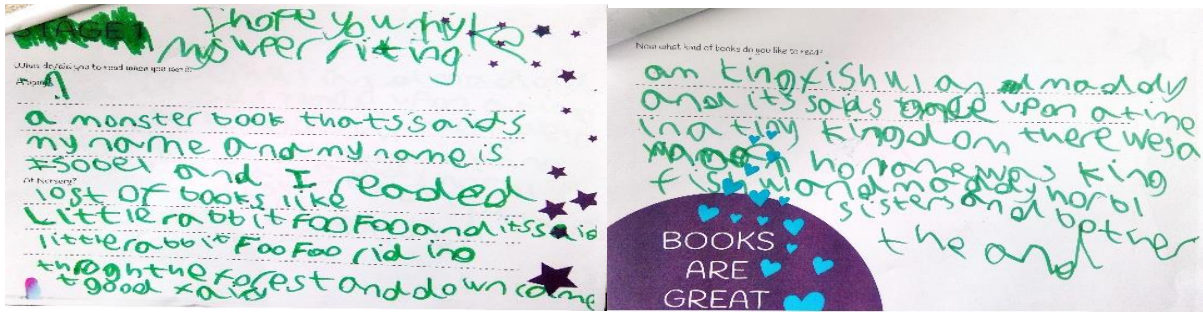 STAGE 1
I hope you like
my wer riting
What do/did you to read when you were:
At home?
a monster book thats saids
my name and my name is
Isobel and I readed
At Nursery?
lost of books like
Little rabbit FOO FOO and its said
little rabbit FOO FOO rid ing
throgh the forest and down came
t good fairy
Now what kind of books do you like to read?
an king fish and maddy
and its saids once upon a time
in a tiny kingdom there wes a
ho name was king
fish and maddy horbl
sisters and bother
the and
BOOKS
ARE
GREAT